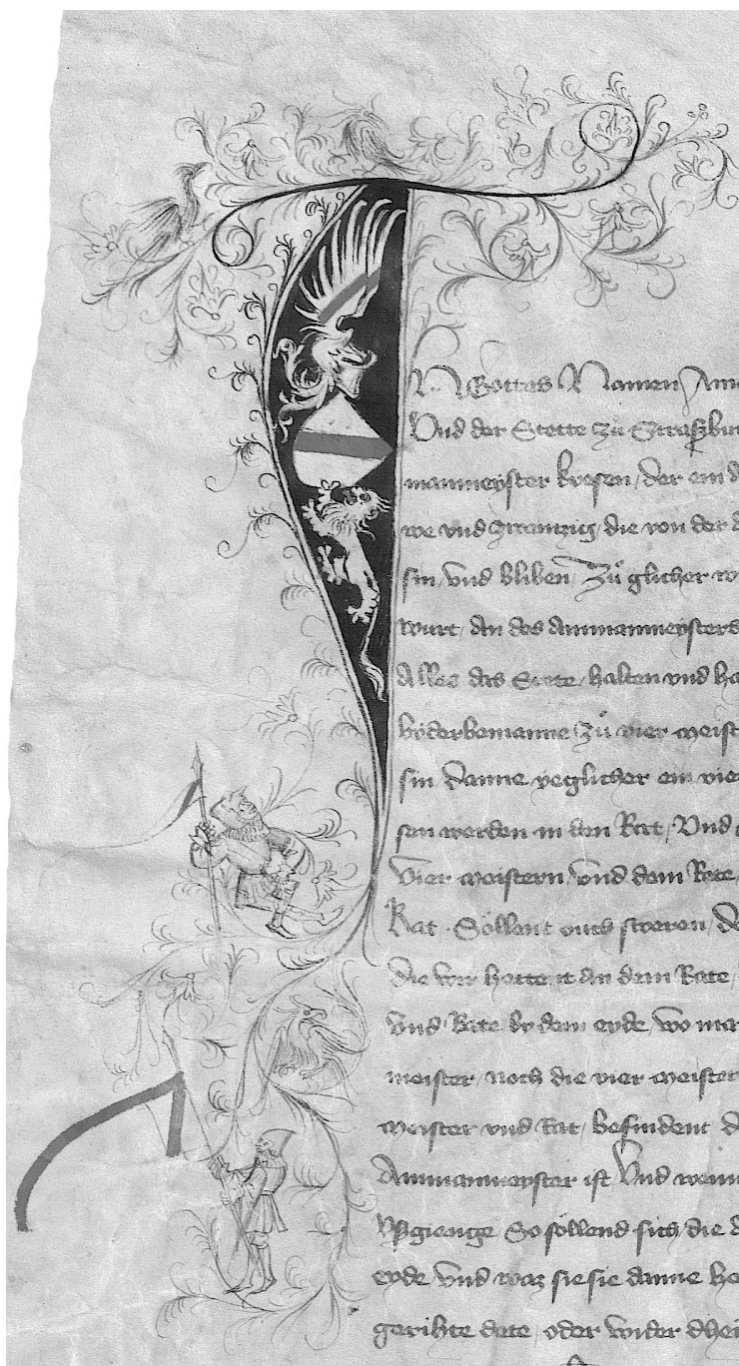 IN Gottes Namen Amen
Und der Stette zů Straszbur
manmeyster kiesen, der ein
we und zwentzig, die von der
sin, und bliben, Zů glicher w
wurt, An des Ammanmeysters
Alles das Stete, halten und ha
bőderbemanne, zů vier meist
sin danne yeglicher ein vie
sen werden in den Rat, Und
Vier meistern, und dem Rete,
Rat. Sőllent ouch sweren, de
die wir hettent an dem Rate,
und Rate by dem eyde, wo man
meister, noch die vier meister
meister und Rat, befindent d
Ammanmeyster ist Und wenn
Vszgienge So sőllend sich die
eyde Und waz sie sie danne he
gerihte dete, oder wider dhei